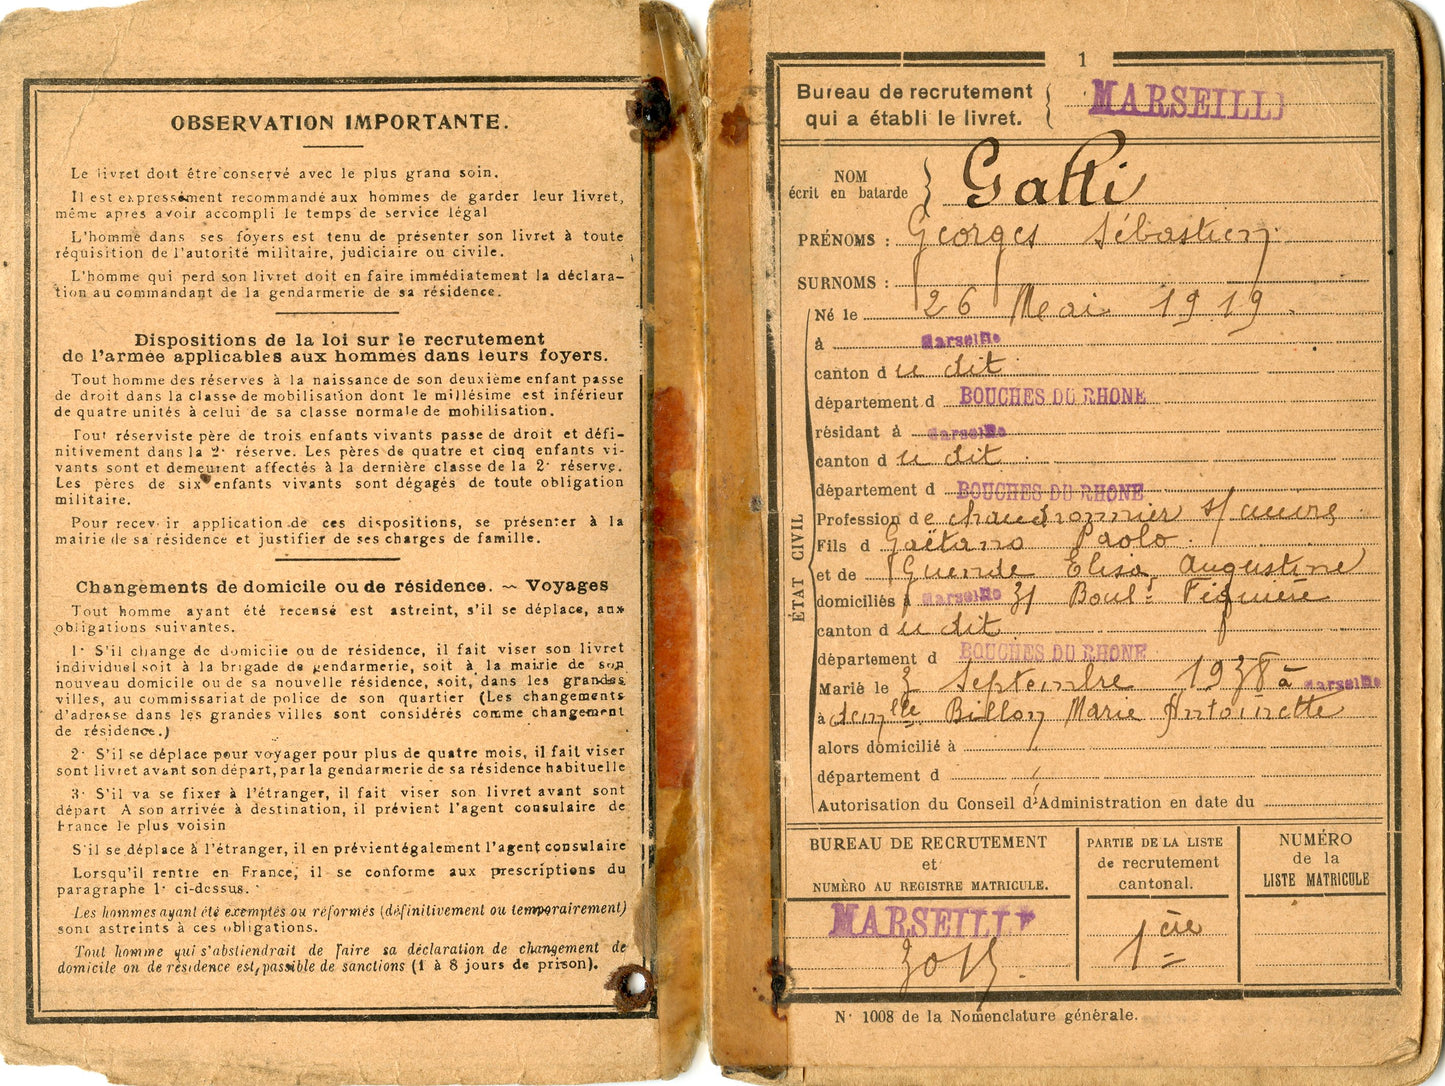 OBSERVATION IMPORTANTE.
Le livret doit être conservé avec le plus grand soin.
Il est expressément recommandé aux hommes de garder leur livret,
même après avoir accompli le temps de service légal
L'homme dans ses foyers est tenu de présenter son livret à toute
réquisition de l'autorité militaire, judiciaire ou civile.
L'homme qui perd son livret doit en faire immédiatement la déclara-
tion au commandant de la gendarmerie de sa résidence.
Dispositions de la loi sur le recrutement
de l'armée applicables aux hommes dans leurs foyers.
Tout homme des réserves à la naissance de son deuxième enfant passe
de droit dans la classe de mobilisation dont le millésime est inférieur
de quatre unités à celui de sa classe normale de mobilisation.
Tout réserviste père de trois enfants vivants passe de droit et défi-
nitivement dans la 2e réserve. Les pères de quatre et cinq enfants vi-
vants sont et demeurent affectés à la dernière classe de la 2e réserve.
Les pères de six enfants vivants sont dégagés de toute obligation
militaire.
Pour recevoir application de ces dispositions, se présenter à la
mairie de sa résidence et justifier de ses charges de famille.
Changements de domicile ou de résidence. ~ Voyages
Tout homme ayant été recensé est astreint, s'il se déplace, aux
obligations suivantes.
1° S'il change de domicile ou de résidence, il fait viser son livret
individuel soit à la brigade de gendarmerie, soit à la mairie de son
nouveau domicile ou de sa nouvelle résidence, soit, dans les grandes
villes, au commissariat de police de son quartier (Les changements
d'adresse dans les grandes villes sont considérés comme changement
de résidence.)
2° S'il se déplace pour voyager pour plus de quatre mois, il fait viser
son livret avant son départ, par la gendarmerie de sa résidence habituelle
3° S'il va se fixer à l'étranger, il fait viser son livret avant son
départ A son arrivée à destination, il prévient l'agent consulaire de
France le plus voisin
S'il se déplace à l'étranger, il en prévient également l'agent consulaire
Lorsqu'il rentre en France, il se conforme aux prescriptions du
paragraphe 1° ci-dessus.
Les hommes ayant été exemptés ou réformés (définitivement ou temporairement)
sont astreints à ces obligations.
Tout homme qui s'abstiendrait de faire sa déclaration de changement de
domicile ou de résidence est passible de sanctions (1 à 8 jours de prison).
1
Bureau de recrutement
qui a établi le livret. MARSEILLE
NOM
écrit en batarde Gatti
PRÉNOMS : Georges Sébastien
SURNOMS :
ÉTAT CIVIL
Né le 26 Mai 1919
à Marseille
canton du dit
département d BOUCHES DU RHONE
résidant à Marseille
canton du dit
département d BOUCHES DU RHONE
Profession de chaudronnier s/cuivre
Fils d Gaëtano Paolo
et de Elisa Augustine
domiciliés à Marseille 31 Boul.d
canton du dit
département d BOUCHES DU RHONE
Marié le 3 Septembre 1938 à Marseille
à demlle Billon Marie Antoinette
alors domicilié à
département d
Autorisation du Conseil d'Administration en date du
BUREAU DE RECRUTEMENT
et
NUMÉRO AU REGISTRE MATRICULE.
PARTIE DE LA LISTE
de recrutement
cantonal.
NUMÉRO
de la
LISTE MATRICULE
MARSEILLE
1ère
N° 1008 de la Nomenclature générale.